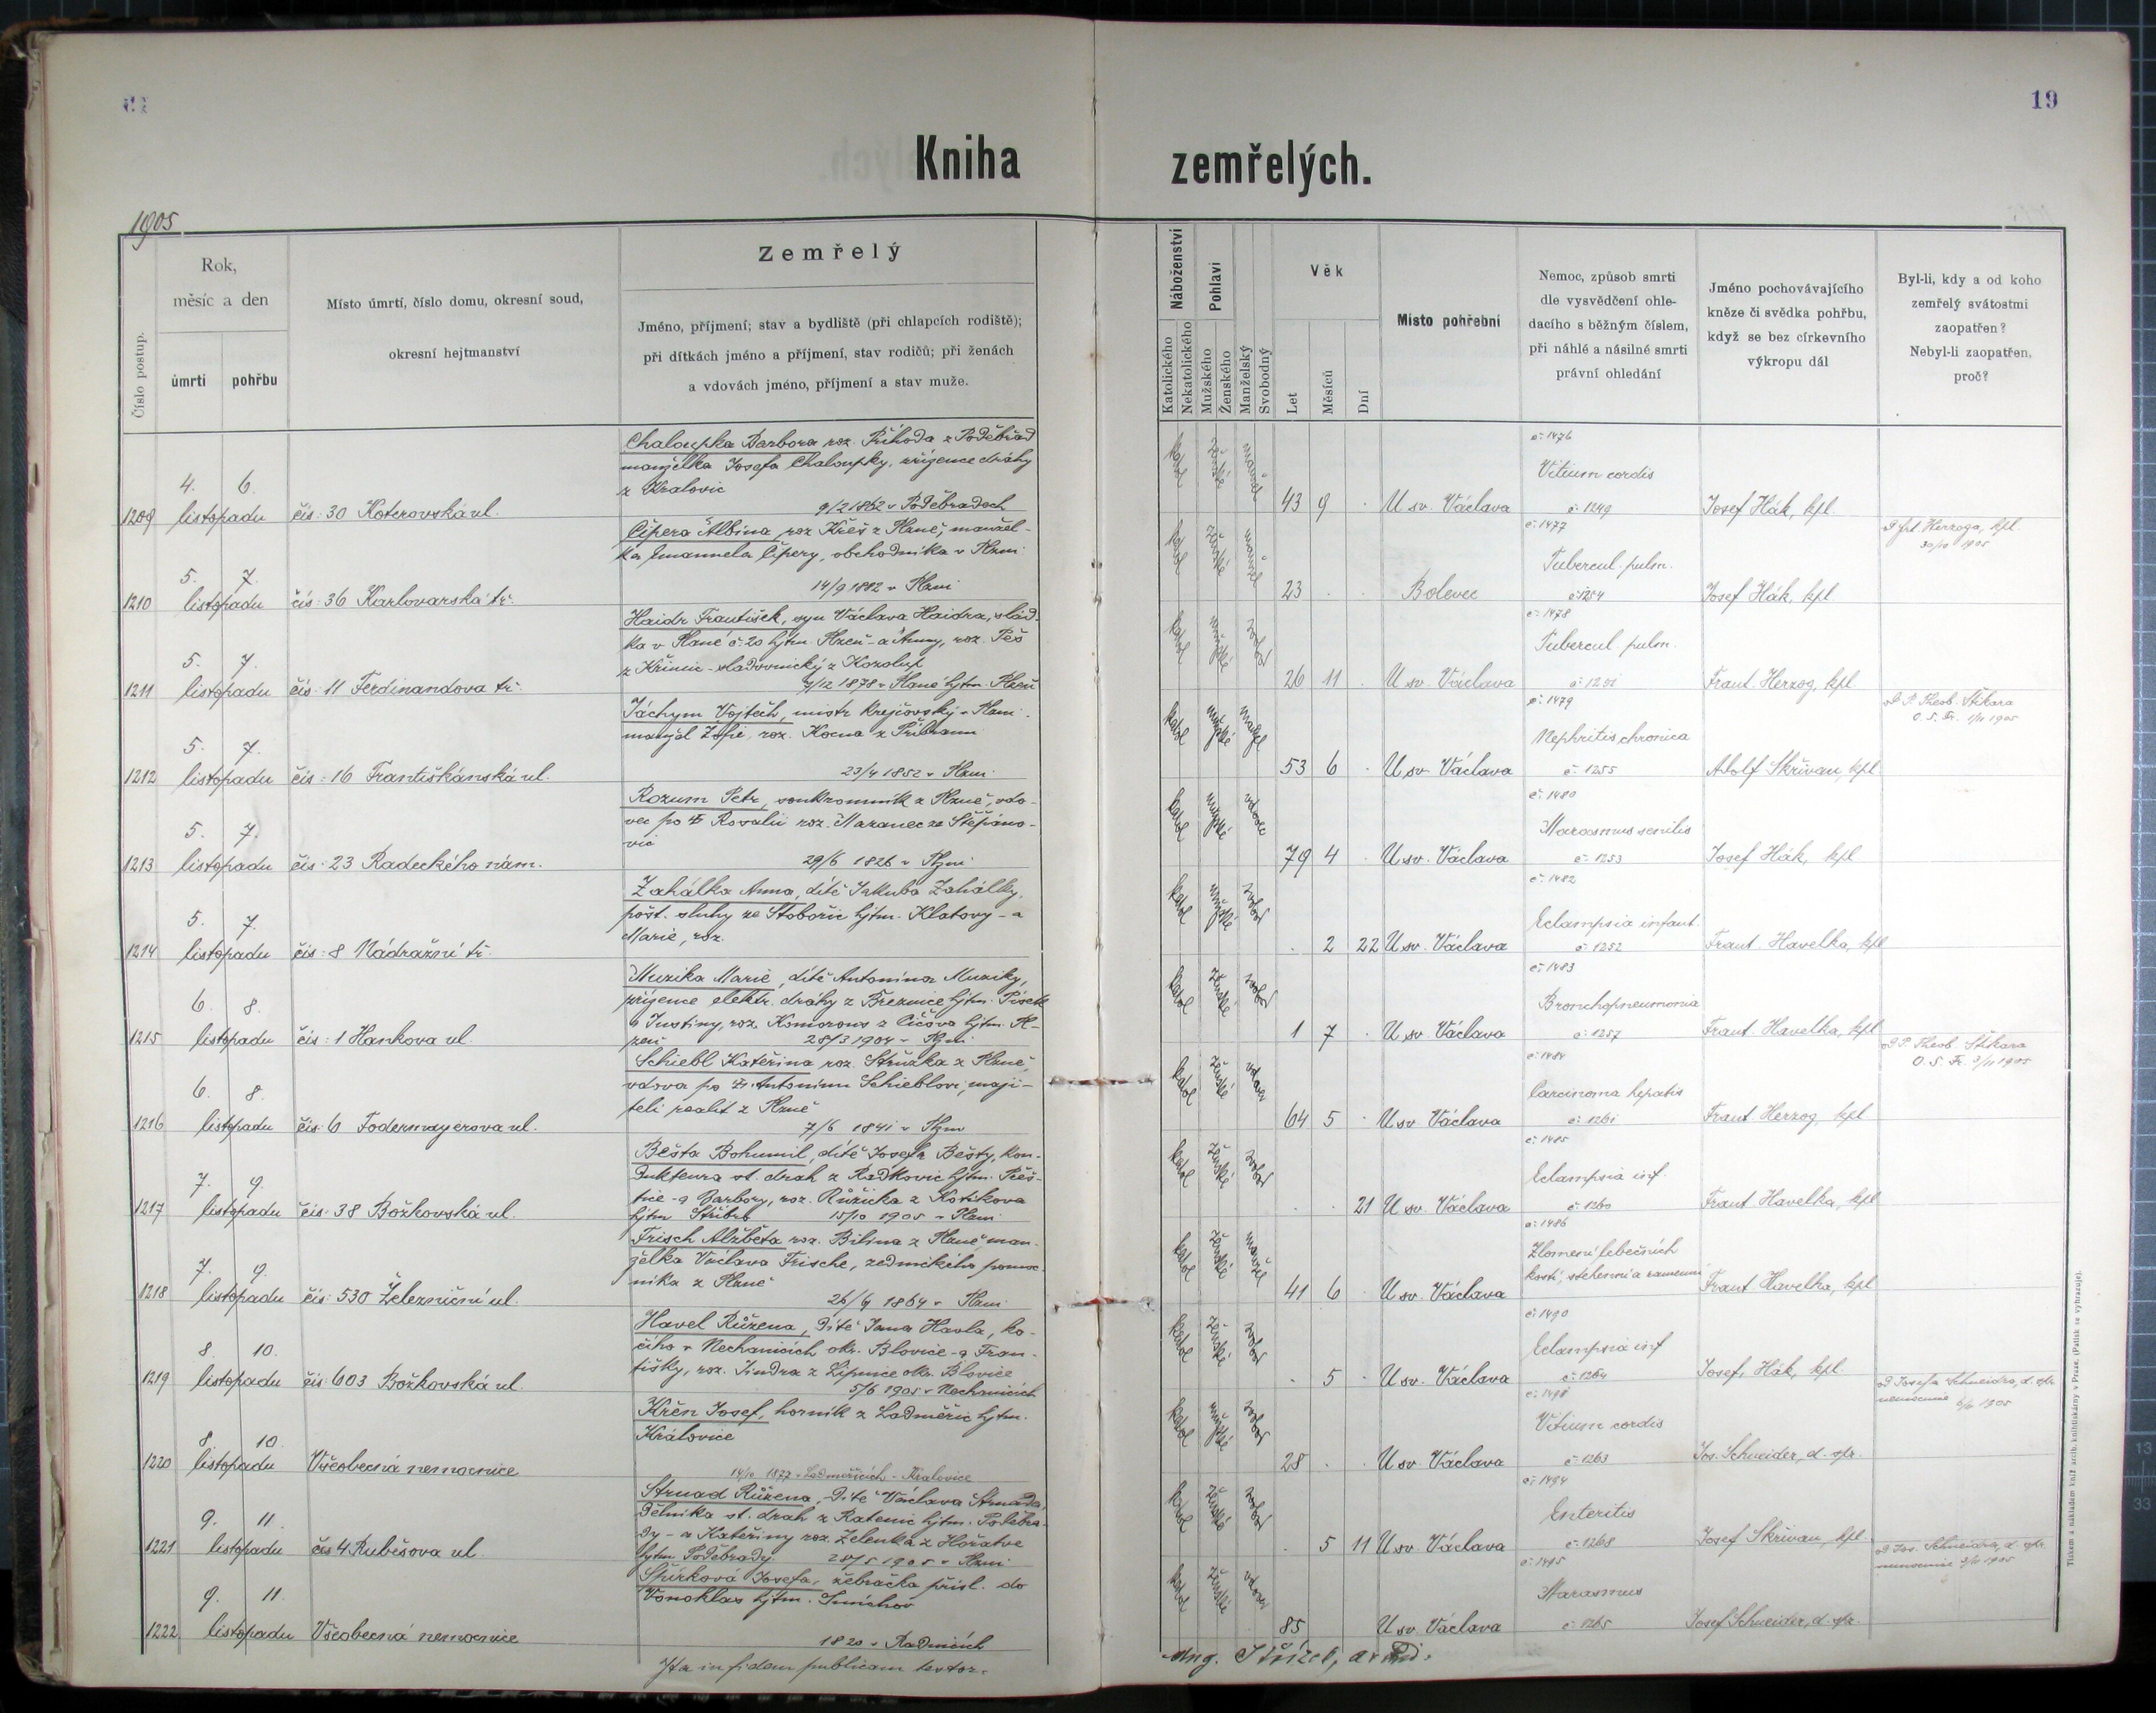 19
Kniha zemřelých.
1905
Číslo postup.
Rok,
měsíc a den
úmrtí
pohřbu
Místo úmrtí, číslo domu, okresní soud,
okresní hejtmanství
Zemřelý
Jméno, příjmení; stav a bydliště (při chlapcích rodiště);
při dítkách jméno a příjmení, stav rodičů; při ženách
a vdovách jméno, příjmení a stav muže.
Náboženství
Katolického
Nekatolického
Pohlaví
Mužského
Ženského
Manželský
Svobodný
Věk
Let
Měsíců
Dní
Místo pohřební
Nemoc, způsob smrti
dle vysvědčení ohle-
dacího s běžným číslem,
při náhlé a násilné smrti
právní ohledání
Jméno pochovávajícího
kněze či svědka pohřbu,
když se bez církevního
výkropu dál
Byl-li, kdy a od koho
zemřelý svátostmi
zaopatřen?
Nebyl-li zaopatřen,
proč?
1209 4. 6. listopadu čís: 30 Koterovská ul.
Chaloupka Barbora roz. Příhoda z Poděbrad
manželka Josefa Chaloupky, zřízence dráhy
z Kralovic
9/2 1862 v Poděbradech
katol ženské 43 9 U sv. Václava
č: 1476
Vitium cordis
č: 1249
Josef Hák, kpl.
1210 5. 7. listopadu čís: 36 Karlovarská tř.
Čipera Albina roz Křeš z Plzně, manžel-
ka Emanuela Čipery, obchodníka v Plzni
14/9 1882 v Plzni
katol ženské 23 Bolevec
č: 1477
Tubercul. pulm.
č: 1254
Josef Hák, kpl
Herzoga, kpl.
30/10 1905
1211 5. 7. listopadu čís: 11 Ferdinandova tř.
Haidr František, syn Václava Haidra, slád-
ka v Plané č. 20 hjtm Plzeň - a Anny, roz. Peš
z Křimic - sladovnický z Kozolup
7/12 1878 v Plané hjtm. Plzeň
katol mužské svobod 26 11 U sv. Václava
č: 1478
Tubercul pulm.
č: 1251
Frant. Herzog, kpl.
1212 5. 7. listopadu čís: 16 Františkánská ul.
Jáchym Vojtěch, mistr krejčovský v Plzni.
manžel Žofie, roz. Kocna z Příbrami
23/4 1852 v Plzni
katol mužské manžel 53 6 U sv. Václava
č: 1479
Nephritis chronica
č: 1255
Adolf Skřivan, kpl
P. Theob. Štikara
O. S. Fr. 1/11 1905
1213 5. 7. listopadu čís: 23 Radeckého nám.
Rozum Petr, soukromník z Plzně, vdo-
vec po Rosalii roz. Maranec ze Štěpáno-
vic
29/6 1826 v Plzni
katol mužské vdovec 79 4 U sv. Václava
č: 1480
Marasmus senilis
č: 1253
Josef Hák, kpl
1214 5. 7. listopadu čís: 8 Nádražní tř.
Zahálka Anna, dítě Jakuba Zahálky,
pošt. sluhy ze Stobořic hjtm. Klatovy - a
Marie, roz.
katol svobod 2 22 U sv. Václava
č: 1482
Eclampsia infant.
č: 1252
Frant. Havelka, kpl
1215 6. 8. listopadu čís: 1 Hankova ul.
Muzika Marie, dítě Antonína Muziky,
zřízence elektr. dráhy z Březnice hjtm. Písek
a Justiny, roz. Komorous z Čičova hjtm. Pl-
zeň 28/3 1904 v Plzni
katol ženské svobod 1 7 U sv. Václava
č: 1483
Bronchopneumonia
č: 1257
Frant Havelka, kpl
1216 6. 8. listopadu čís. 6 Fodermayerova ul.
Schiebl Kateřina roz. Stružka z Plzně,
vdova po Antonínu Schieblovi, maji-
teli realit z Plzně
7/6 1841 v Plzni
katol ženské vdova 64 5 U sv Václava
č: 1484
Carcinoma hepatis
č: 1261
Frant Herzog, kpl
P. Theob. Štikara
O. S. Fr. 3/11 1905
1217 7. 9. listopadu čís: 38 Božkovská ul.
Bešta Bohumil, dítě Josefa Bešty, kon-
duktéra st. drah z Radkovic hjtm. Přeš-
tice - a Barbory, roz. Růžička z Kotíkova
hjtm Stříbro 15/10 1905 v Plzni
katol ženské svobod 21 U sv. Václava
č: 1485
Eclampsia inf.
č: 1260
Frant Havelka, kpl
1218 7. 9. listopadu čís: 530 Železniční ul.
Frisch Alžběta roz. Bílina z Plzně, man-
želka Václava Frische, zednického pomoc-
níka z Plzně
26/4 1864 v Plzni
katol ženské 41 6 U sv. Václava
č: 1486
Zlomení lebečních
kostí, stehenní a ramenní
Frant Havelka, kpl
1219 8. 10. listopadu čís: 603 Božkovská ul.
Havel Růžena, dítě Jana Havla, ko-
čího v Nechanicích okr. Blovice - a Fran-
tišky, roz. Jindra z Lipnice okr. Blovice
5/6 1905 v Nechanicích
katol ženské svobod 5 U sv. Václava
č: 1490
Eclampsia inf
č: 1264
Josef Hák, kpl
1220 8 10. listopadu Všeobecná nemocnice
Křen Josef, horník z Ladměřic hjtm.
Kralovice
14/10 1877 v Ladměřicích - Kralovice
katol mužské svobod 28 U sv. Václava
Vitium cordis
č: 1263
Jos. Schneider, d. spr.
Josefa Schneidra, d. spr.
nemocnice 1905
1221 9. 11. listopadu čís 4 Rubešova ul.
Strnad Růžena, dítě Václava Strnada,
dělníka st. drah z Ratenic hjtm. Poděbra-
dy - a Kateřiny roz. Zelenka z Hořatve
hjtm Poděbrady 28/5 1905 v Plzni
katol ženské svobod 5 11 U sv. Václava
č: 1494
Enteritis
č: 1268
Josef Skřivan, kpl
1222 9. 11. listopadu Všeobecná nemocnice
Spírková Josefa, žebračka přísl. do
Vonoklas hjtm. Smíchov
1820 v Radnicích
katol ženské vdova 85 U sv. Václava
č: 1495
Marasmus
č: 1265
Josef Schneider, d. spr.
Jos. Schneidra, d. spr.
nemocnice 1905
Ita in fidem publicam testor.
Aug. Střízek, arcid.
Tiskem a nákladem kníž. arcib. knihtiskárny v Praze. (Patisk se vyhrazuje).